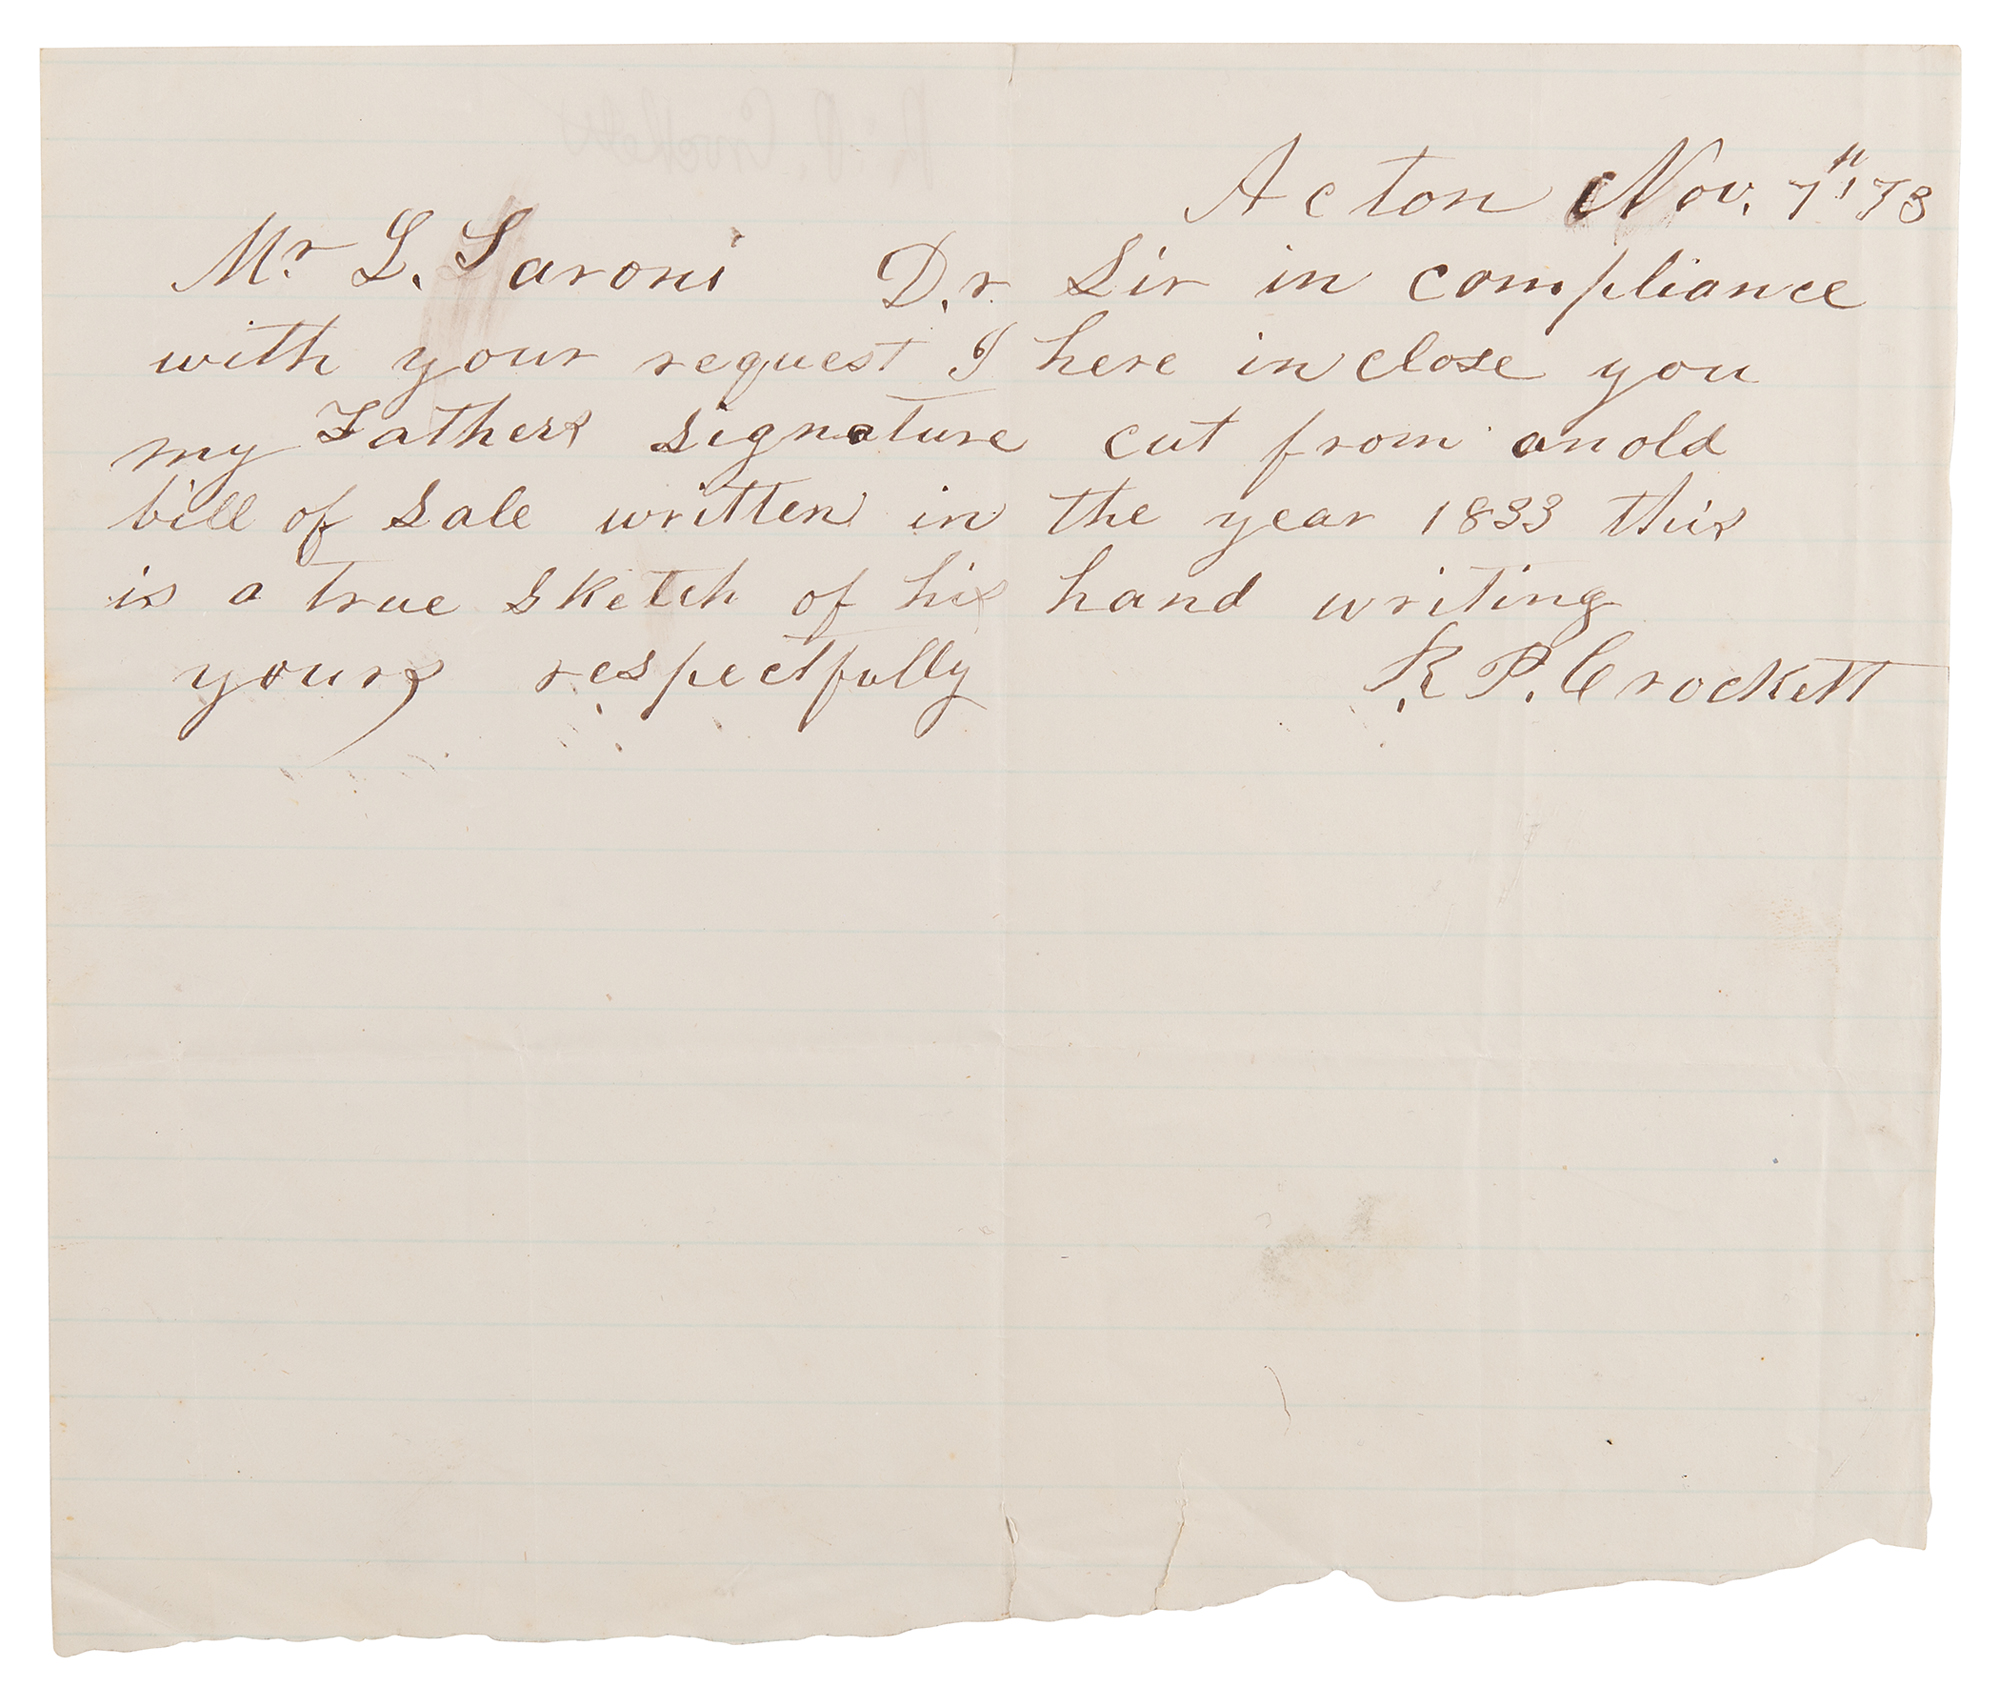 Acton Nov. 7" 73
Mr. L. Saroni D.r Sir in compliance
with your request I here in close you
my Fathers signature cut from an old
bill of sale written in the year 1833 this
is a true sketch of his hand writing
yours respectfully R. P. Crockett